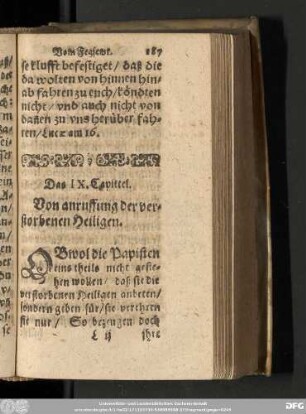 Vom Fegfewr. 187
se klufft befestiget / daß die
da wolten von hinnen hin-
ab fahren zu euch / köndten
nicht / vnd auch nicht von
dannen zu vns herüber fah-
ren / Luc am 16.
Das IX. Capittel.
Von anruffung der ver-
storbenen Heiligen.
OBwol die Papisten
eins theils nicht geste-
hen wollen / daß sie die
verstorbenen Heiligen anbeten /
sondern geben für / sie verehren
sie nur / So bezeugen doch
L ij ihre